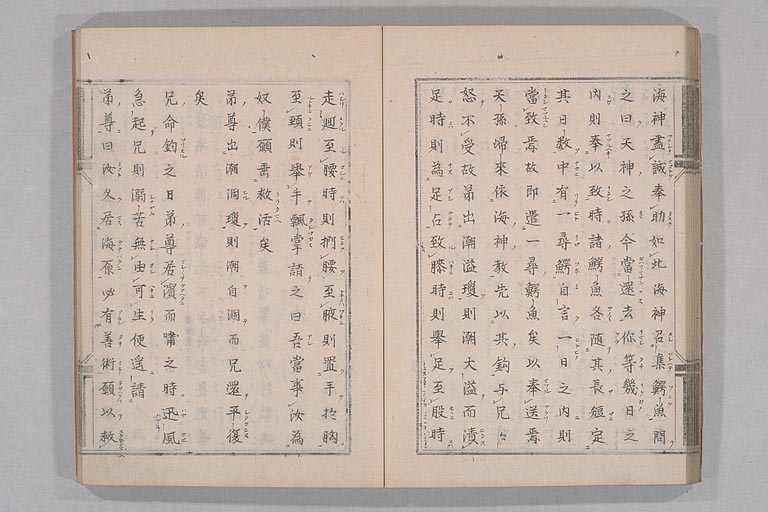 海神盡誠奉助如此海神召集鰐魚問
之曰天神之孫今當還去你等幾日之
內則奉以致時諸鰐魚各隨其長短定
其日數中有一尋鰐自言一日之內則
當致焉故即遣一尋鰐魚矣以奉送焉
天孫歸來依海神教先以其鈎与兄々
怒不受故弟出潮溢瓊則潮大溢而漬
足時則為足占致膝時則舉足至股時
走廻至腰時則捫腰至腋則置手於胸
至頸則舉手飄掌請之曰吾當事汝為
奴僕願垂救活矣
弟尊出潮涸瓊則潮自涸而兄還平復
矣
兄命釣之日弟尊居濱而嘯之時迅風
急起兄則溺苦無由可生便遙請
弟尊曰汝久居海原必有善術願以救